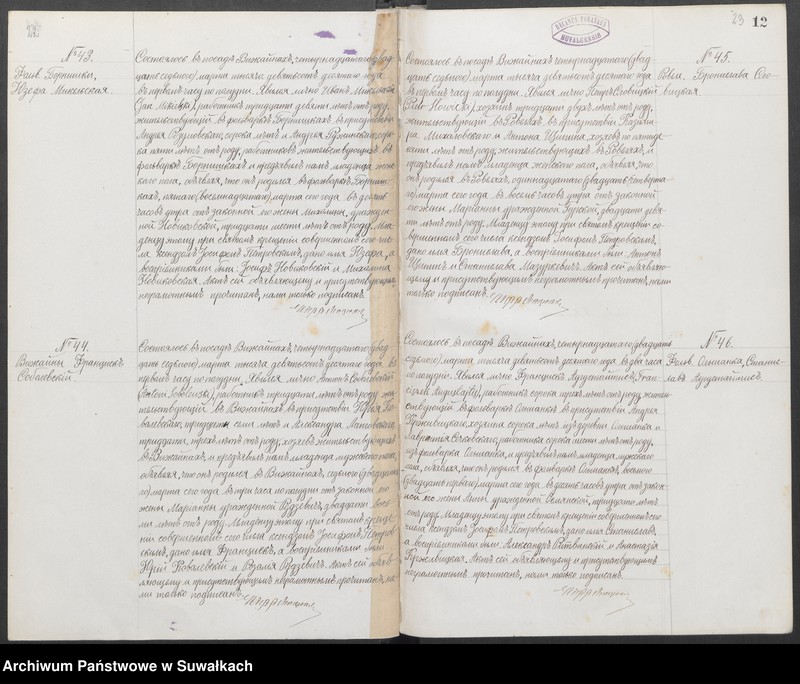 №43.
Фольв. Бернишки,
Юзефа Микельская.
Состоялось въ посадѣ Вижайнахъ, четырнадцатаго (двад-
цать седьмого) марта тысяча девятьсотъ десятаго года
въ первый часъ по полудни. Явился лично Иванъ
(Jan работникъ, тридцати девяти лѣтъ отъ роду,
жительствующій въ фольваркѣ Бернишкахъ въ присутствіи
Андрея сорока лѣтъ и Андрея соро-
ка пяти лѣтъ отъ роду, работниковъ жительствующихъ въ
фольваркѣ Бернишкахъ и предъявилъ намъ младенца жен-
скаго пола, объявляя, что онъ родился въ фольваркѣ Берниш-
кахъ, пятаго (восемнадцатаго) марта сего года въ десять
часовъ утра отъ законной его жены Михалины, урожден-
ной Новиковской, тридцати шести лѣтъ отъ роду. Мла-
денцу этому при святомъ крещеніи совершенномъ сего чис-
ла ксендзомъ Іосифомъ Петровскимъ, дано имя Юзефа, а
воспріемниками были Іосифъ Новиковскій и Михалина
Новиковская. Актъ сей объявляющему и присутствующимъ
неграмотнымъ прочитанъ, нами только подписанъ.
№44.
Вижайны Францишекъ
Соболевскій.
Состоялось въ посадѣ Вижайнахъ, четырнадцатаго (двад-
цать седьмого) марта тысяча девятьсотъ десятаго года въ
первый часъ по полудни. Явился лично Антонъ Соболевскій
(Antoni Sobolewski), работникъ тридцати лѣтъ отъ роду жи-
тельствующій въ Вижайнахъ въ присутствіи Юрія Ко-
валевскаго, тридцати семи лѣтъ и Александра
тридцати трехъ лѣтъ отъ роду, хозяевъ жительствующихъ
въ Вижайнахъ, и предъявилъ намъ младенца мужескаго пола,
объявляя, что онъ родился въ Вижайнахъ, седьмого (двадцата-
го) марта сего года въ три часа по полудни отъ законной его
жены Марianны урожденной Рудзевичъ, двадцати восьми
лѣтъ отъ роду. Младенцу этому при святомъ креще-
ніи совершенномъ сего числа ксендзомъ Іосифомъ Петров-
скимъ, дано имя Францишекъ, а воспріемниками были
Юрій Ковалевскій и Розалія Рудзевичъ. Актъ сей объяв-
ляющему и присутствующимъ неграмотнымъ прочитанъ, на-
ми только подписанъ.
SUWALSKIE
23 12
№45.
Бронислава
Состоялось въ посадѣ Вижайнахъ, четырнадцатаго (двад-
цать седьмого) марта тысяча девятьсотъ десятаго года
въ первый часъ по полудни. Явился лично Петръ
(Piotr хозяинъ тридцати двухъ лѣтъ отъ роду,
жительствующій въ въ присутствіи Казими-
ра Михаловскаго и Антона хозяевъ по пятиде-
сяти лѣтъ отъ роду, жительствующихъ въ и
предъявилъ намъ младенца женскаго пола, объявляя, что
онъ родился въ одиннадцатаго (двадцать четверта-
го) марта сего года въ восемь часовъ утра отъ законной
его жены Марianны урожденной двадцати девя-
ти лѣтъ отъ роду. Младенцу этому при святомъ крещеніи со-
вершенномъ сего числа ксендзомъ Іосифомъ Петровскимъ,
дано имя Бронислава, а воспріемниками были Антонъ
и Станислава Мазуркевичъ. Актъ сей объявляю-
щему и присутствующимъ неграмотнымъ прочитанъ, нами
только подписанъ.
№46.
Фольв. Ольшанка, Станис-
лавъ
Состоялось въ посадѣ Вижайнахъ, четырнадцатаго (двадцать
седьмого) марта тысяча девятьсотъ десятаго года въ два часа
по полудни. Явился лично Францишекъ (Fran-
ciszek работникъ сорока трехъ лѣтъ отъ роду, житель-
ствующій въ фольваркѣ Ольшанка въ присутствіи Андрея
хозяина сорока лѣтъ изъ деревни Ольшанка и
Лаврентія работника сорока шести лѣтъ отъ роду,
изъ фольварка Ольшанка, и предъявилъ намъ младенца мужескаго
пола, объявляя, что онъ родился въ фольваркѣ Ольшанкѣ, восьмого
(двадцать перваго) марта сего года въ десять часовъ утра отъ закон-
ной его жены Анны урожденной тридцати лѣтъ
отъ роду. Младенцу этому при святомъ крещеніи совершенномъ сего
числа ксендзомъ Іосифомъ Петровскимъ, дано имя Станиславъ,
а воспріемниками были Александръ и Анастазія
Актъ сей объявляющему и присутствующимъ
неграмотнымъ прочитанъ, нами только подписанъ.
Archiwum Państwowe w Suwałkach